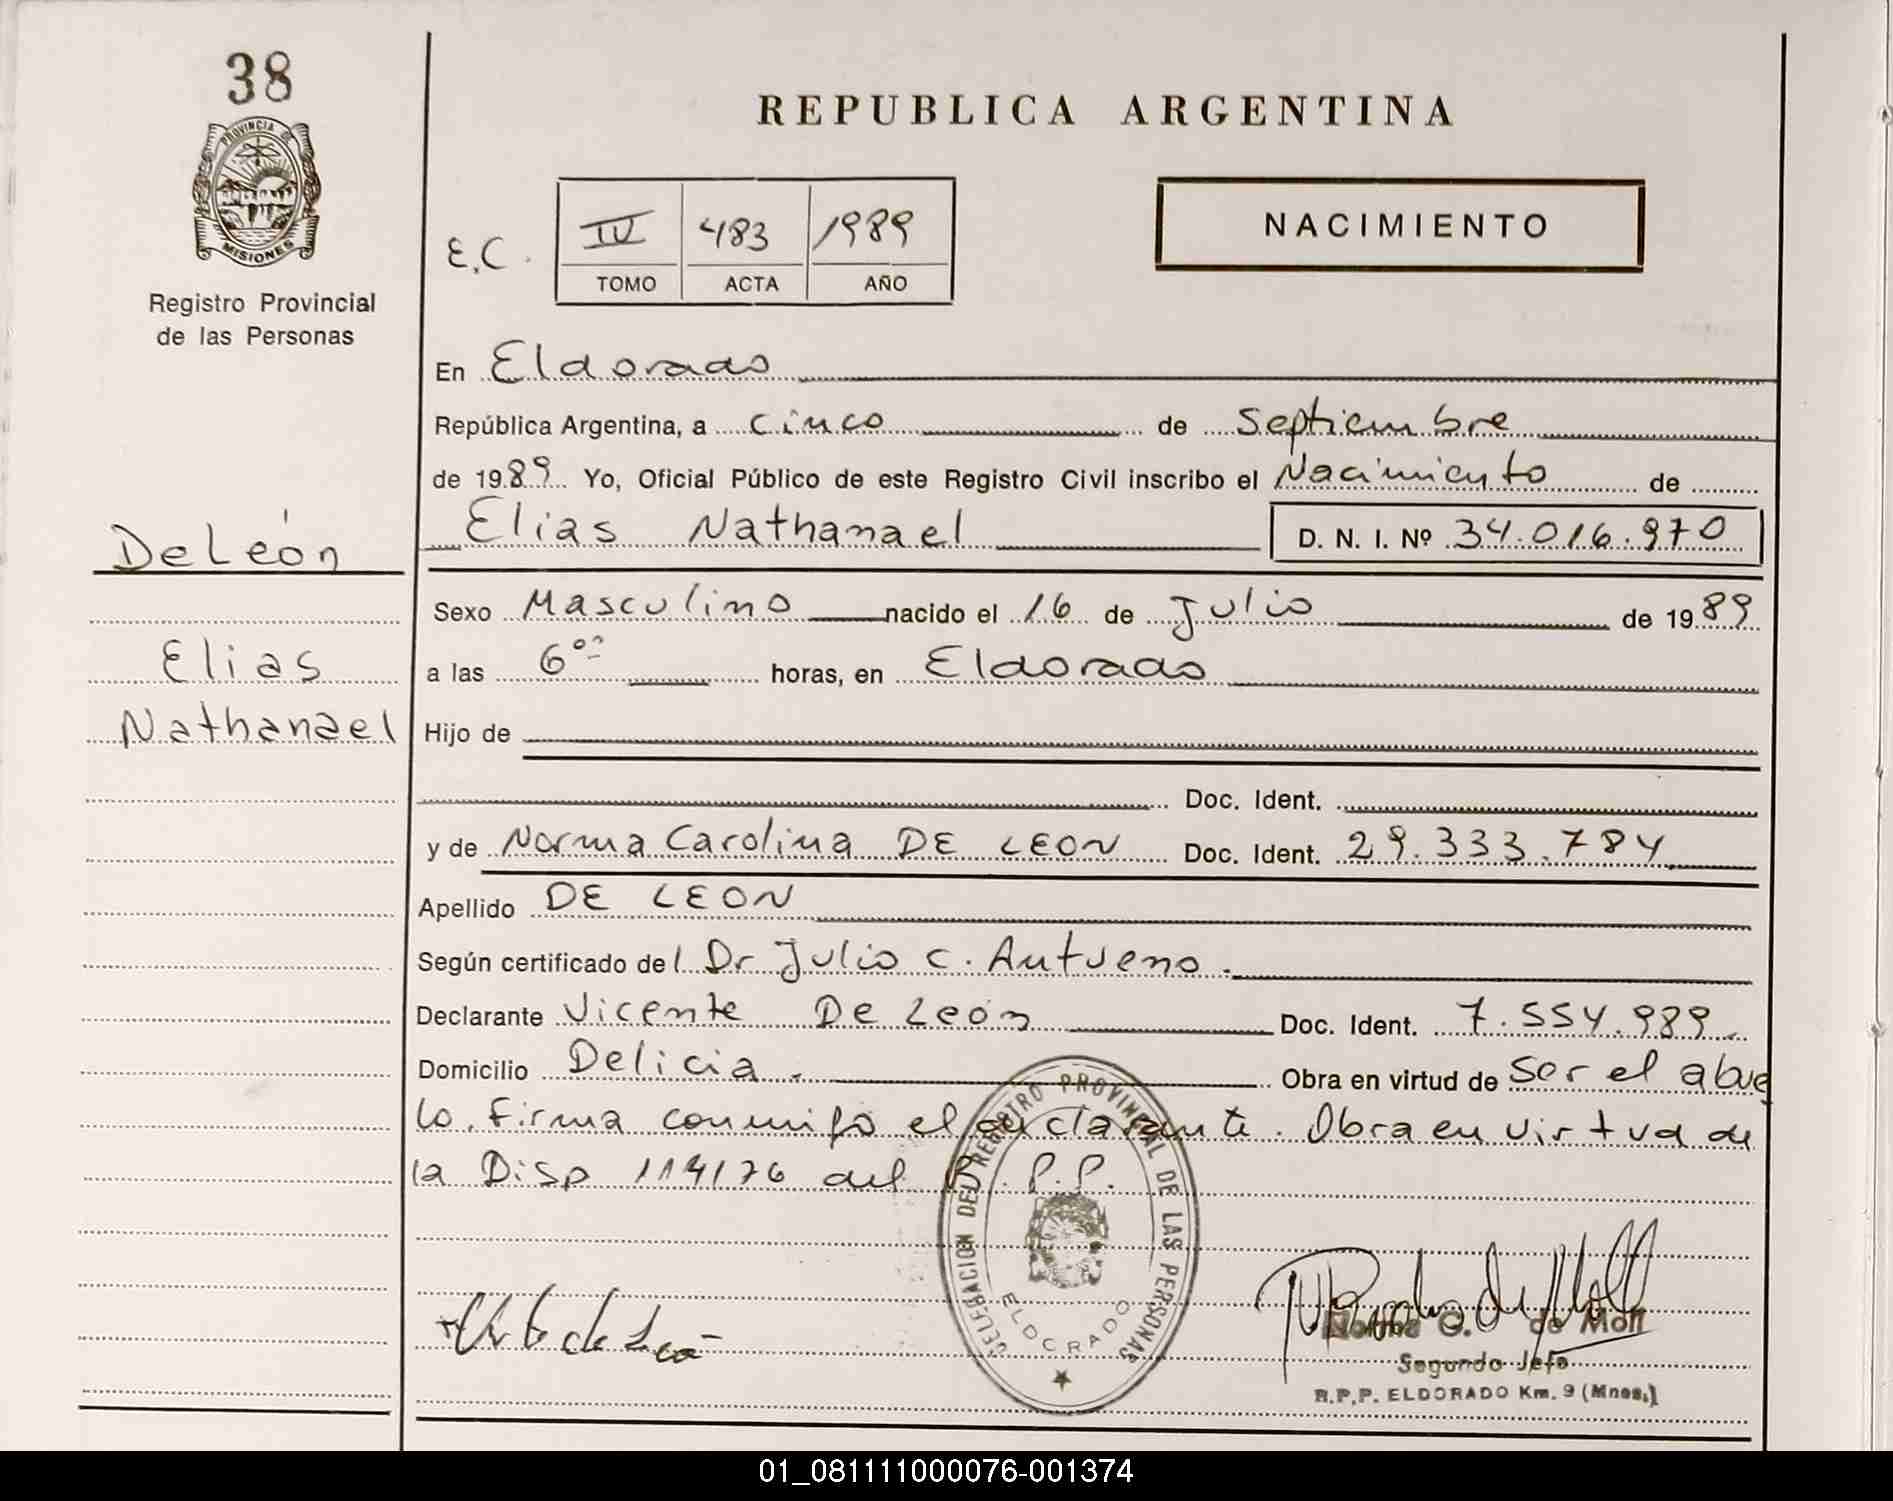 38
PROVINCIA DE
MISIONES
Registro Provincial
de las Personas
De León
Elias
Nathanael
REPUBLICA ARGENTINA
E.C. IV 483 1989
TOMO ACTA AÑO
NACIMIENTO
En Eldorado
República Argentina, a cinco de Septiembre
de 1989 Yo, Oficial Público de este Registro Civil inscribo el Nacimiento de
Elias Nathanael D. N. I. Nº 34.016.970
Sexo Masculino nacido el 16 de Julio de 1989
a las 6ºº horas, en Eldorado
Hijo de
Doc. Ident.
y de Norma Carolina DE LEON Doc. Ident. 29.333.784
Apellido DE LEON
Según certificado del Dr Julio C. Antueno.
Declarante Vicente De León Doc. Ident. 7.554.989
Domicilio Delicia. Obra en virtud de ser el abue
lo. Firma conmigo el declarante. Obra en virtud de
la Disp 114176 del R.P.P.
DELEGACION DEL REGISTRO PROVINCIAL DE LAS PERSONAS
ELDORADO
Norma G. de Moll
Segundo Jefe
R.P.P. ELDORADO Km. 9 (Mnes.)
01_081111000076-001374